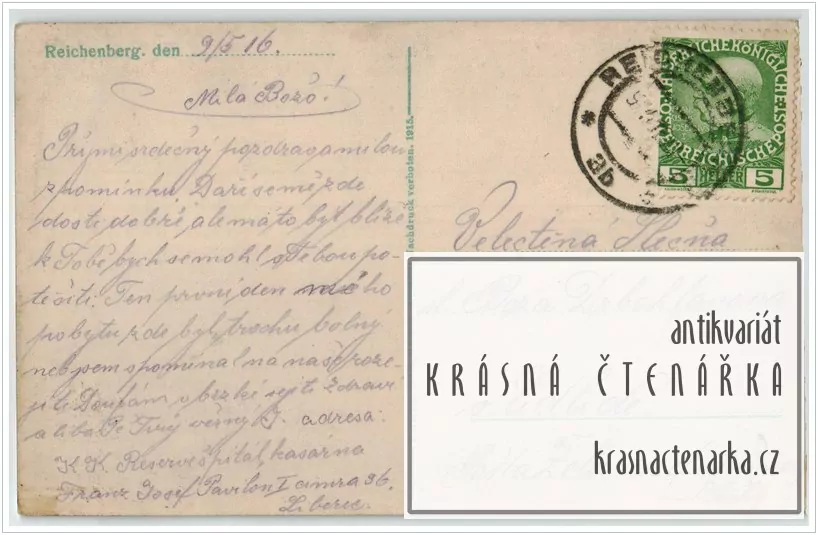 Reichenberg. den 9/5 16.
Milá Božo!
Přijmi srdečný pozdrav a milou
vzpomínku. Daří se mě zde
dosti dobře, ale má to být blíže
k Tobě bych se mohl s Tebou po-
těšiti. Ten první den mého
pobytu zde byl trochu bolný
neb jsem spomínal na naše roze-
jití. Doufám v brzké sejití. Zdraví
a líbá Tě Tvůj věrný J. adresa:
K. K. Reservešpitál, kasárna
Franz Josef Pavilon I cimra 36.
Liberec.
Nachdruck verboten. 1915.
REICHENBERG
* 3q
KAISERLICHE KÖNIGLICHE ÖSTERREICHISCHE POST
5 HELLER 5
Velectěná Slečna
antikvariát
KRÁSNÁ ČTENÁŘKA
krasnactenarka.cz